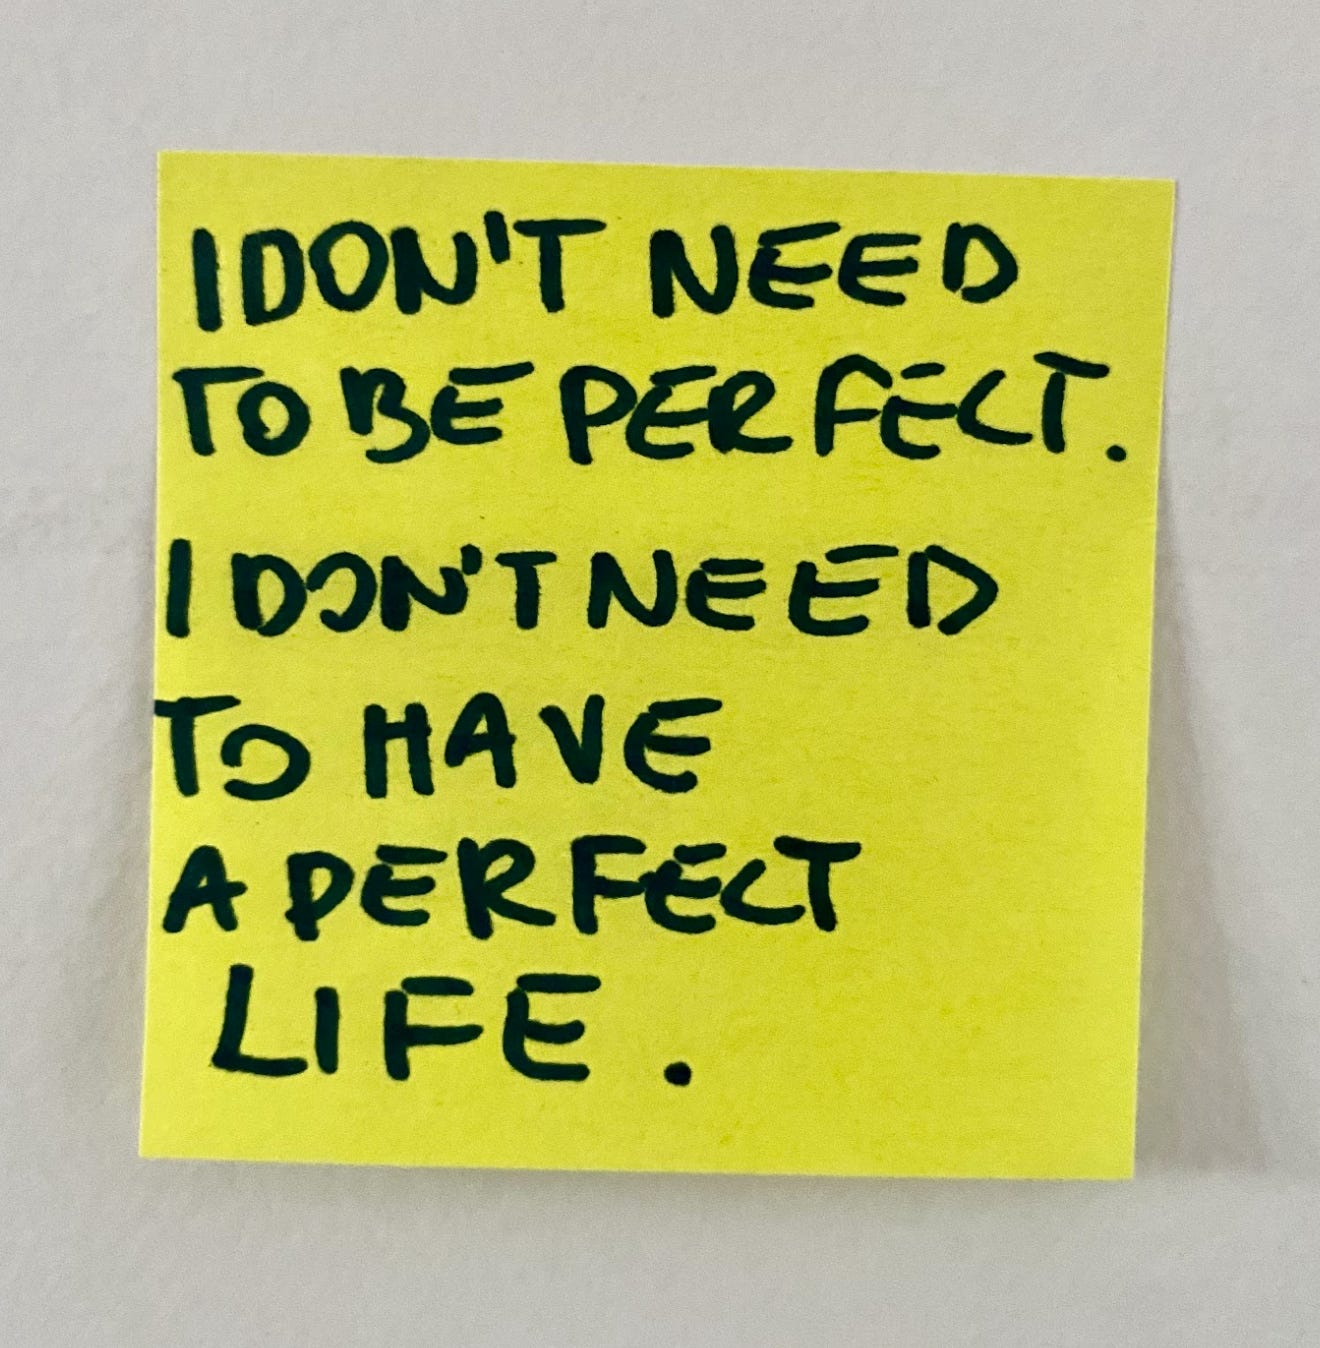 I DON'T NEED
TO BE PERFECT.
I DON'T NEED
TO HAVE
A PERFECT
LIFE.